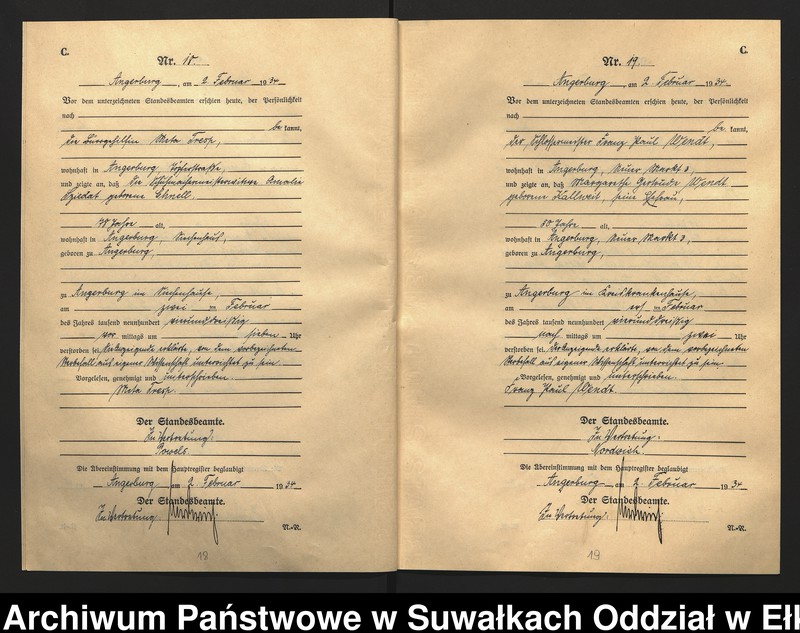 C.
Nr. 18.
Angerburg, am 2. Februar 1934
Vor dem unterzeichneten Standesbeamten erschien heute, der Persönlichkeit
nach
be kannt,
die Bürogehilfin Meta Tresp,
wohnhaft in Angerburg, Töpferstraße,
und zeigte an, daß die Schuhmachermeisterwitwe Amalie
geborene Schnell,
78 Jahre alt,
wohnhaft in Angerburg, Siechenhaus,
geboren zu Angerburg,
zu Angerburg im Siechenhause,
am zwei ten Februar
des Jahres tausend neunhundert vierunddreißig
vor mittags um sieben Uhr
verstorben sei. Die Anzeigende erklärte, von dem vorbezeichneten
Sterbefall aus eigener Wissenschaft unterrichtet zu sein.
Vorgelesen, genehmigt und unterschrieben.
Meta Tresp.
Der Standesbeamte.
In Vertretung:
Powels.
Die Übereinstimmung mit dem Hauptregister beglaubigt
Angerburg am 2. Februar 1934
Der Standesbeamte.
In Vertretung:
N.-N.
18
C.
Nr. 19.
Angerburg, am 2. Februar 1934
Vor dem unterzeichneten Standesbeamten erschien heute, der Persönlichkeit
nach
be kannt,
der Schlossermeister Franz Paul Wendt,
wohnhaft in Angerburg, Neuer Markt 3,
und zeigte an, daß Margarethe Gertrude Wendt
geborene Kallweit, seine Ehefrau,
60 Jahre alt,
wohnhaft in Angerburg, Neuer Markt 3,
geboren zu Angerburg,
zu Angerburg im Kreiskrankenhause,
am ersten Februar
des Jahres tausend neunhundert vierunddreißig
nach mittags um zwei Uhr
verstorben sei. Der Anzeigende erklärte, von dem vorbezeichneten
Sterbefall aus eigener Wissenschaft unterrichtet zu sein.
Vorgelesen, genehmigt und unterschrieben.
Franz Paul Wendt.
Der Standesbeamte.
In Vertretung:
Die Übereinstimmung mit dem Hauptregister beglaubigt
Angerburg am 2. Februar 1934
Der Standesbeamte.
In Vertretung:
N.-N.
19
Archiwum Państwowe w Suwałkach Oddział w Ełk